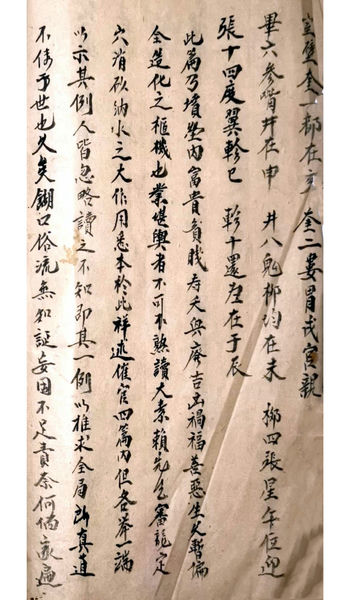 室壁奎一都在亥　奎二婁胃戌宮親
畢六參嘴井在申　井八鬼柳均在未　柳四張星午位迎
張十四度翼軫巳　軫十還在于辰
此篇乃墳塋內富貴貧賤壽夭與廢吉凶禍福善惡生父暫偏
全造化之樞機也業堪輿者不可不熟讀大素賴先生審龍定
穴消砂納水之大作用悉本於此祥述催官四篇內但各举一端
以示其例人皆忽略讀之不知即其一例以推求全局郎真道
不傳于世也久矣餬口俗流無知証妄固不足責奈何儒家遍